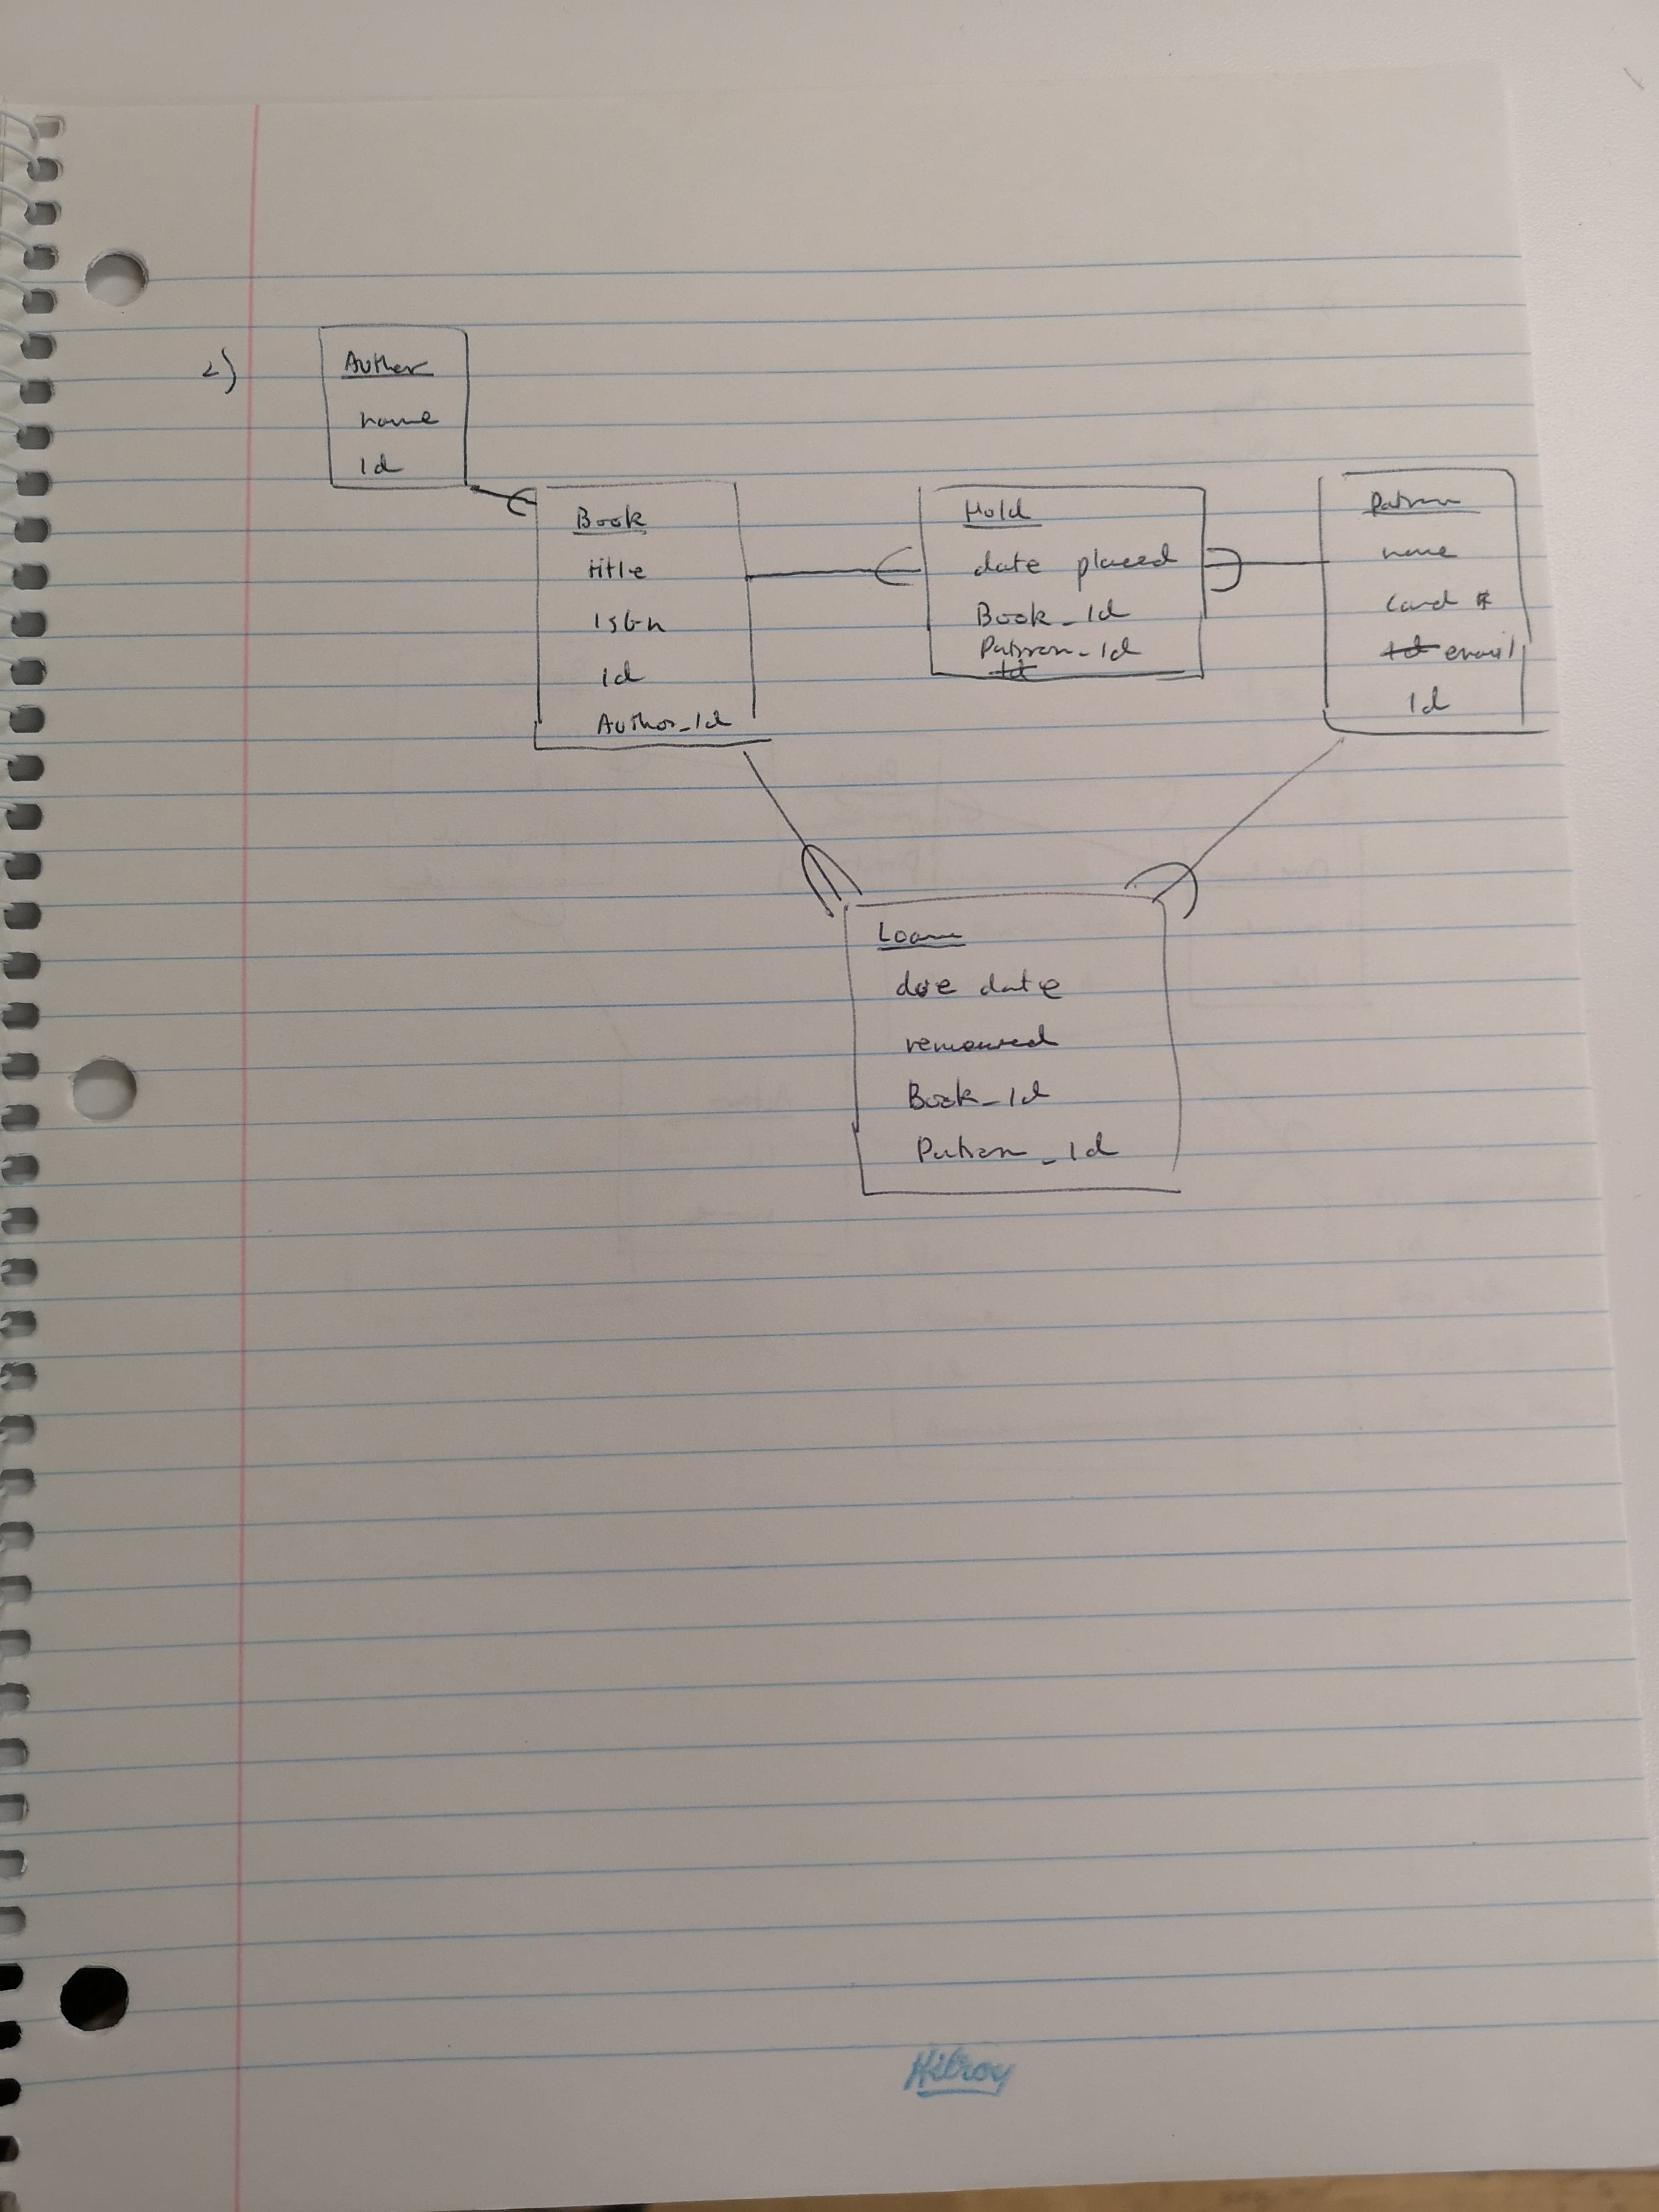 2)
Author
name
Id
Book
title
Isbn
Id
Author_Id
Hold
date placed
Book_Id
Patron_Id
Id
Patron
name
Card #
Id email
Id
Loan
due date
renewed
Book_Id
Patron_Id
Hilroy